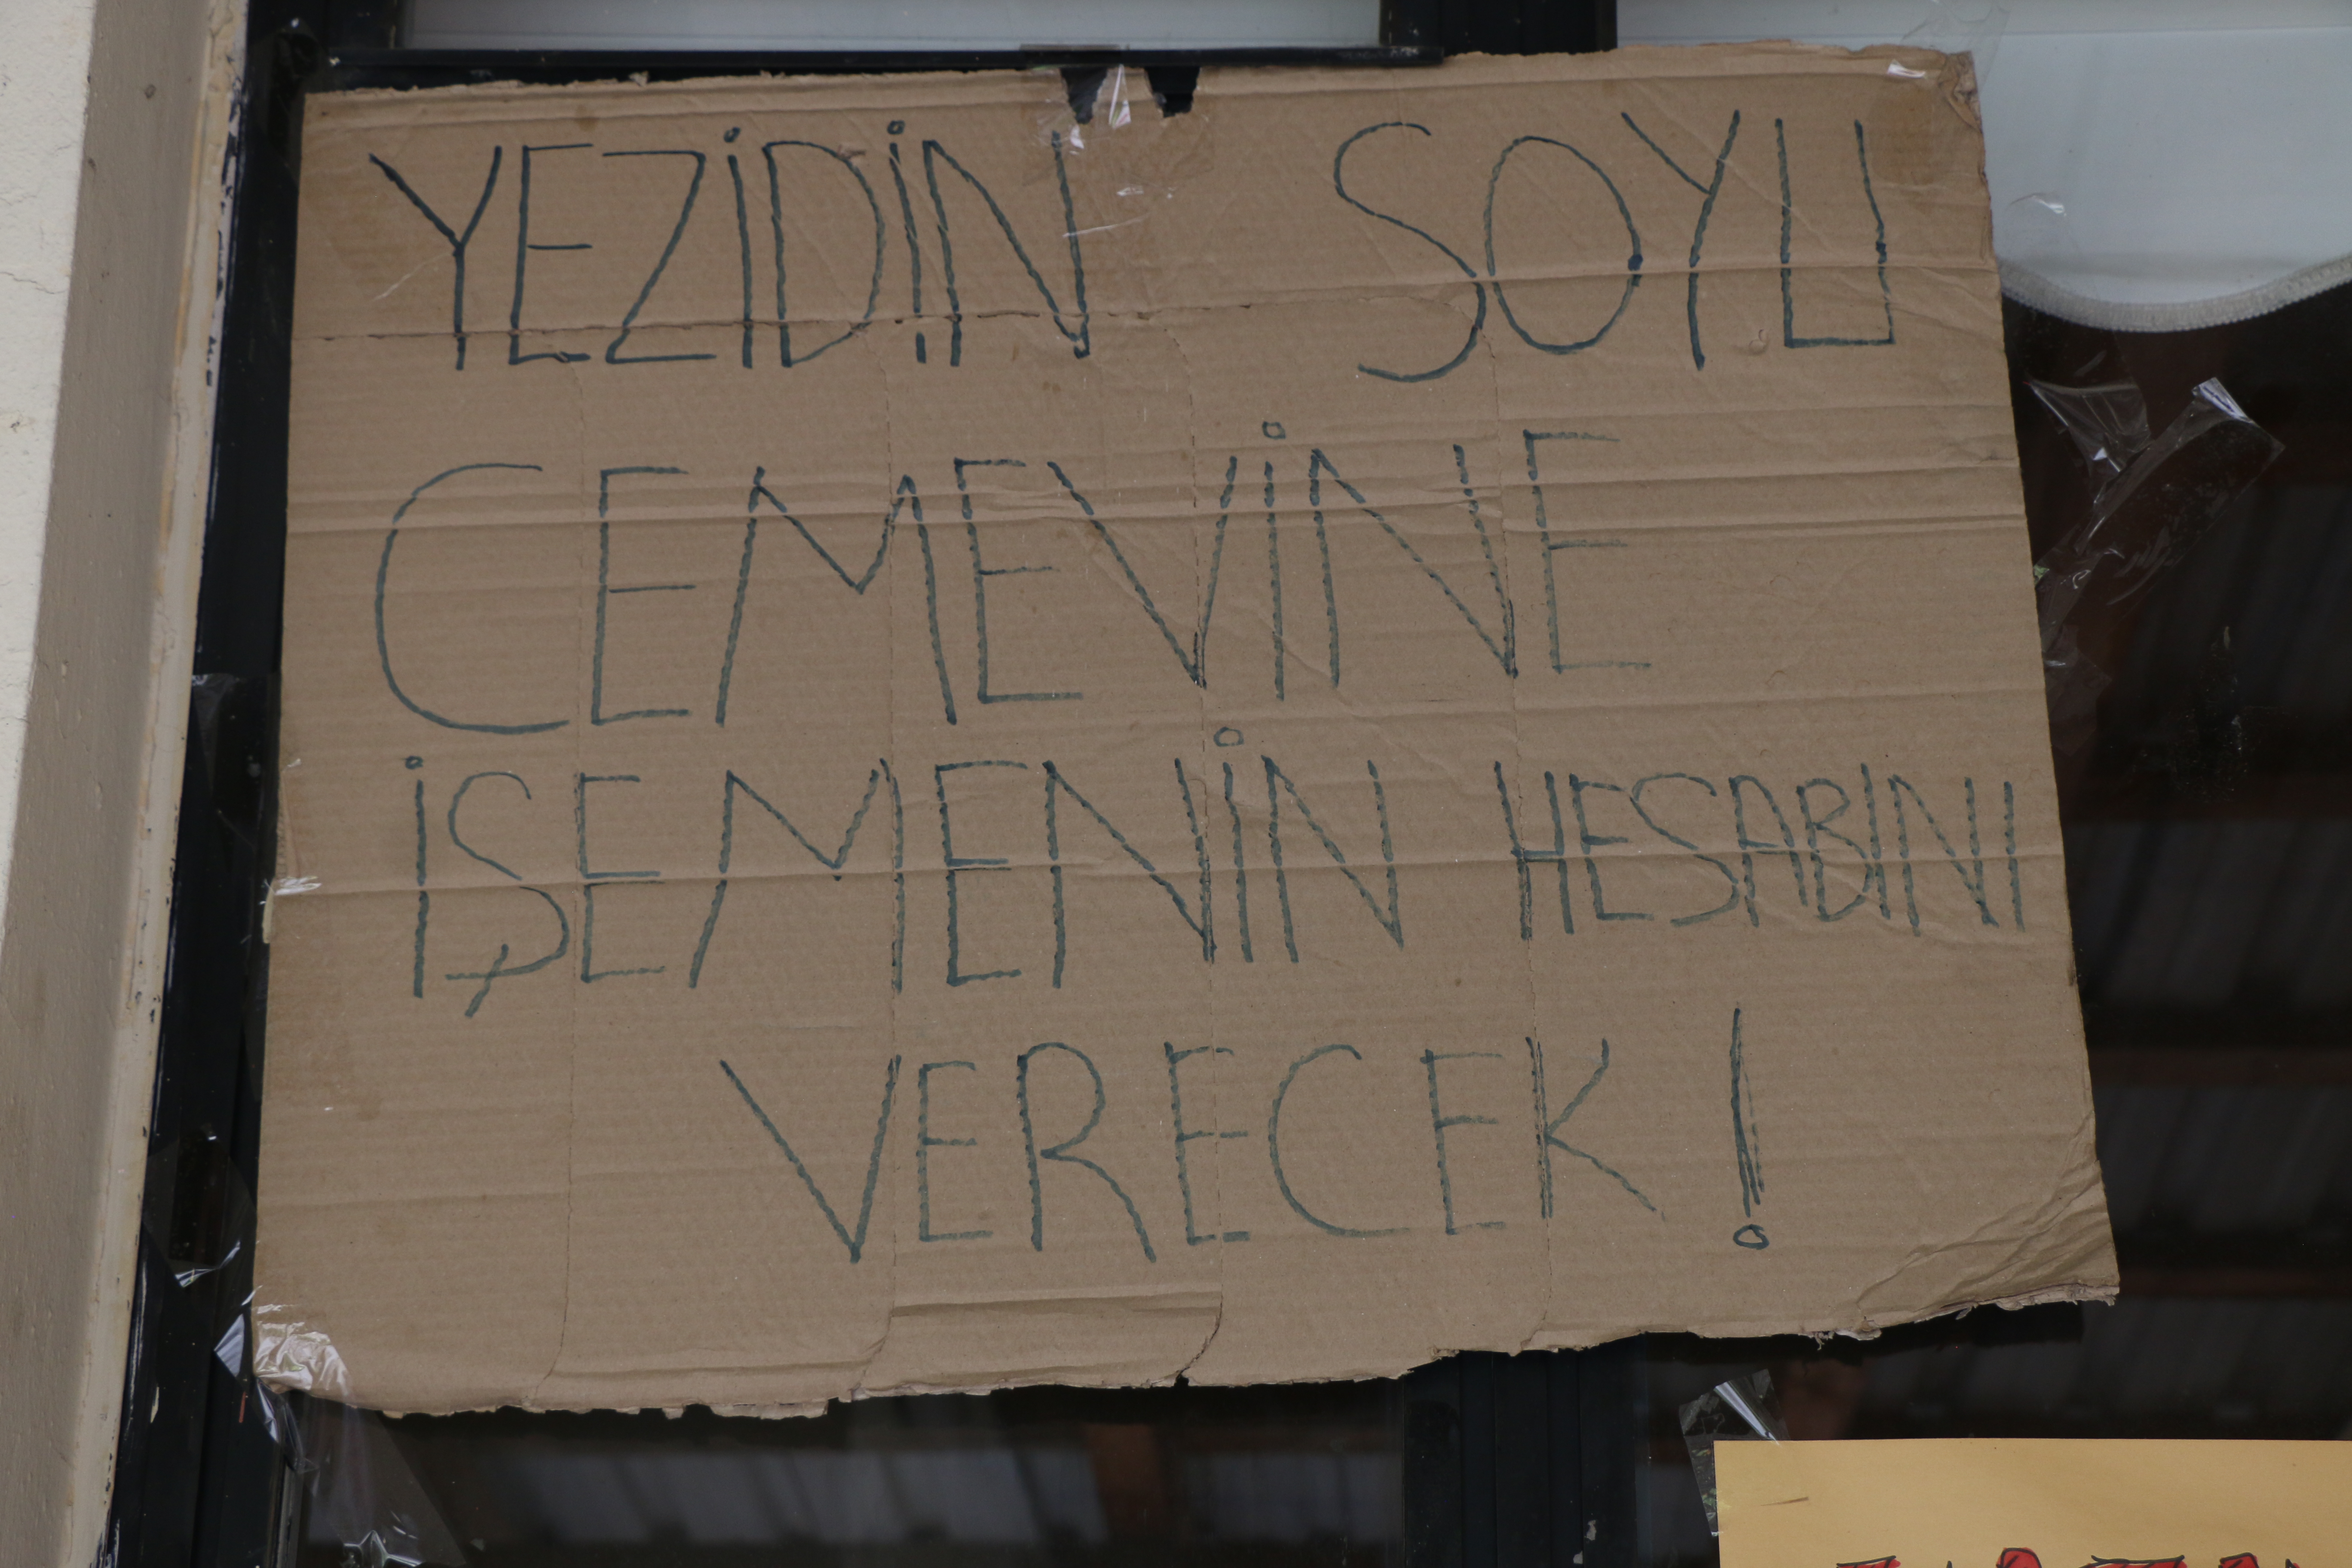 YEZİDİN SOYU
CEMEVİNE
İŞEMENİN HESABINI
VERECEK!